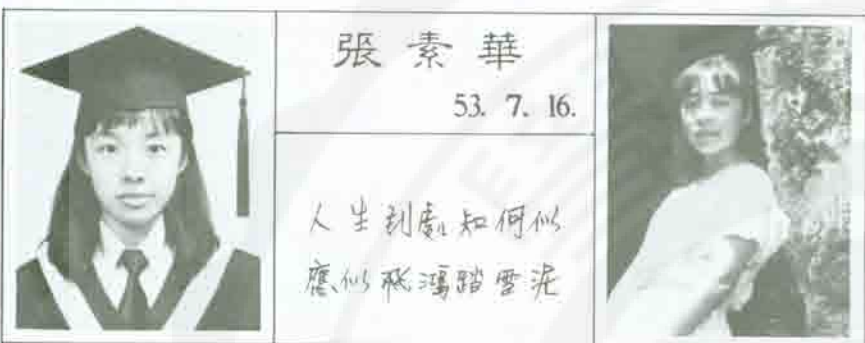 張素華
53. 7. 16.
人生到處知何似
應似飛鴻踏雪泥